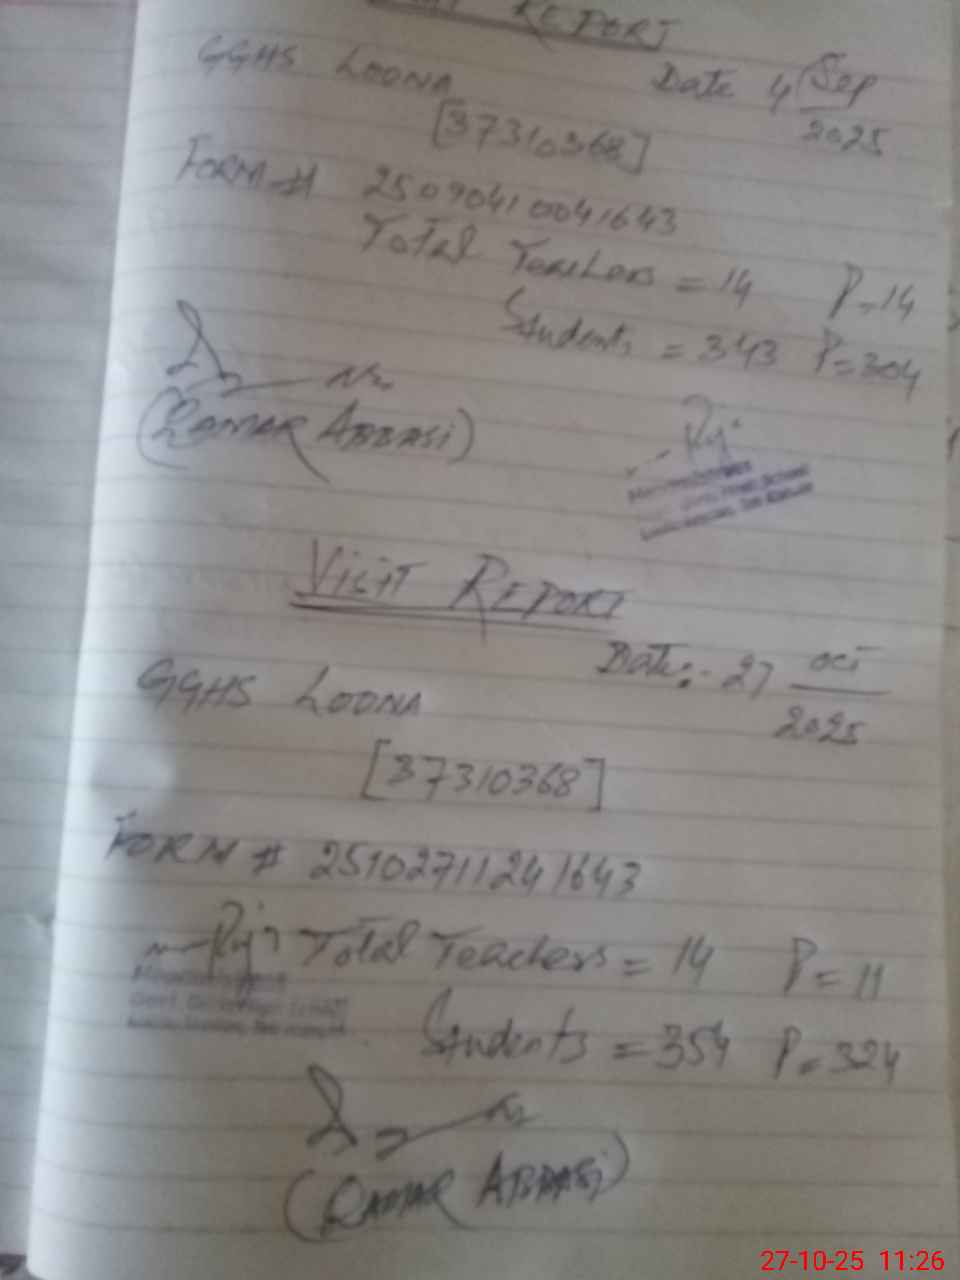 REPORT
GGHS LOONA Date 4 Sep
2025
[37310368]
FORM # 25090410041643
Total Teachers = 14 P=14
Students = 343 P=304
(QAMAR ABBASI)
VISIT REPORT
Date:- 27 OCT
2025
GGHS LOONA
[37310368]
FORM # 25102711241643
Total Teachers = 14 P=11
Students = 354 P=324
(QAMAR ABBASI)
27-10-25 11:26